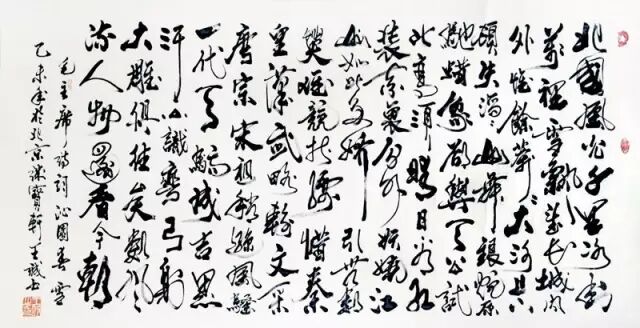 北國風光千里冰封
萬里雪飄望長城内
外惟餘莽莽大河上下
頓失滔滔山舞銀蛇原
馳蠟象欲與天公試
比高須晴日看紅
裝素裹分外妖嬈江
山如此多嬌引無數
英雄競折腰惜秦
皇漢武略輸文采
唐宗宋祖稍遜風騷
一代天驕成吉思
汗只識彎弓射
大雕俱往矣數風
流人物還看今朝
毛主席詩詞沁園春雪
乙未年於北京寶軒王誠书